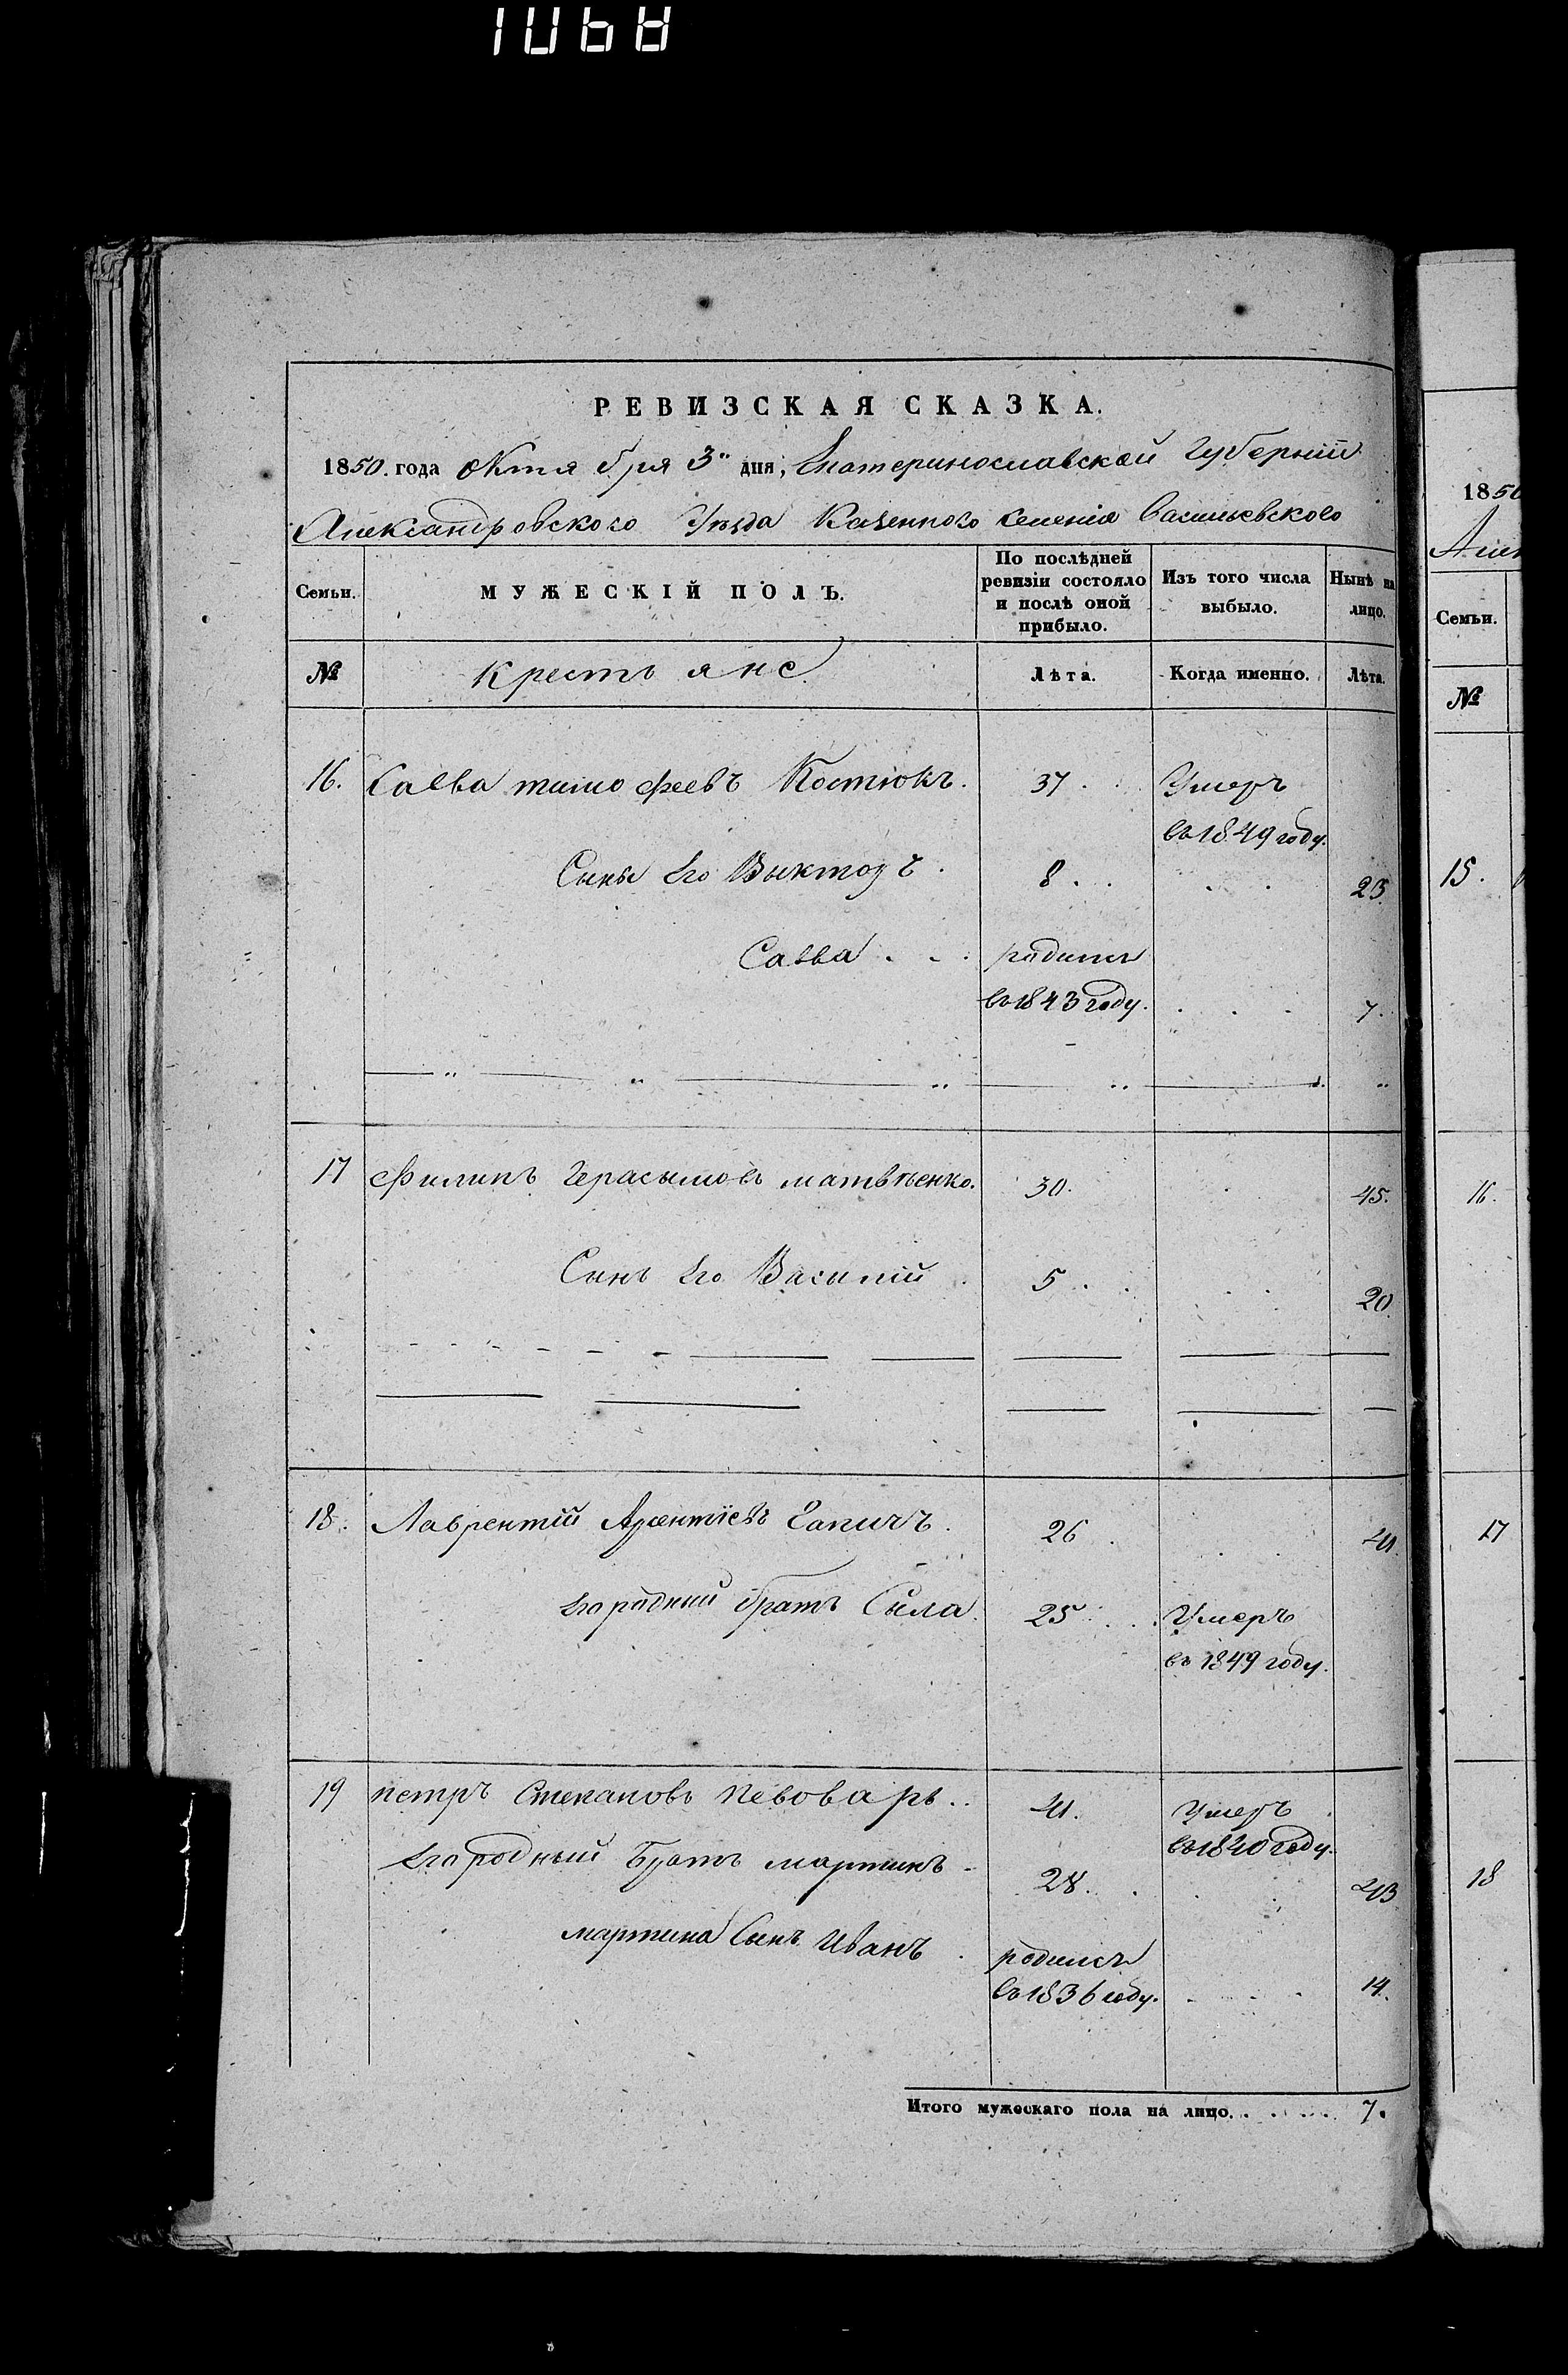 1068
РЕВИЗСКАЯ СКАЗКА.
1850. года октября 3" дня, Екатеринославской Губерніи
Александровского Уѣзда Казенного селенія Васильевского
Семьи. МУЖЕСКІЙ ПОЛЪ. По послѣдней ревизіи состояло и послѣ оной прибыло. Изъ того числа выбыло. Нынѣ на лицо.
№ крестьяне Лѣта. Когда именно. Лѣта.
16. Савва тимофеевъ Костюкъ. 37. Умеръ
въ 1849 году.
Сыны Его Выкторъ. 8. 23
Савва родился
въ 1843 году. 7.
17 Филипъ Герасымовъ матвѣенко. 30. 45.
Сынъ Его Василій 5. 20.
18. Лаврентій Арентіевъ Гапичъ. 26 41.
Его родный братъ Сыла. 25 Умеръ
въ 1849 году.
19 петръ Степановъ певоваръ.. 41. Умеръ
въ 1840 году.
Его родный Братъ мартинъ 28. 43
мартина Сынъ Иванъ родился
въ 1836 году. 14.
Итого мужескаго пола на лицо. 7.
1850
Семьи.
№
15.
16.
17
18